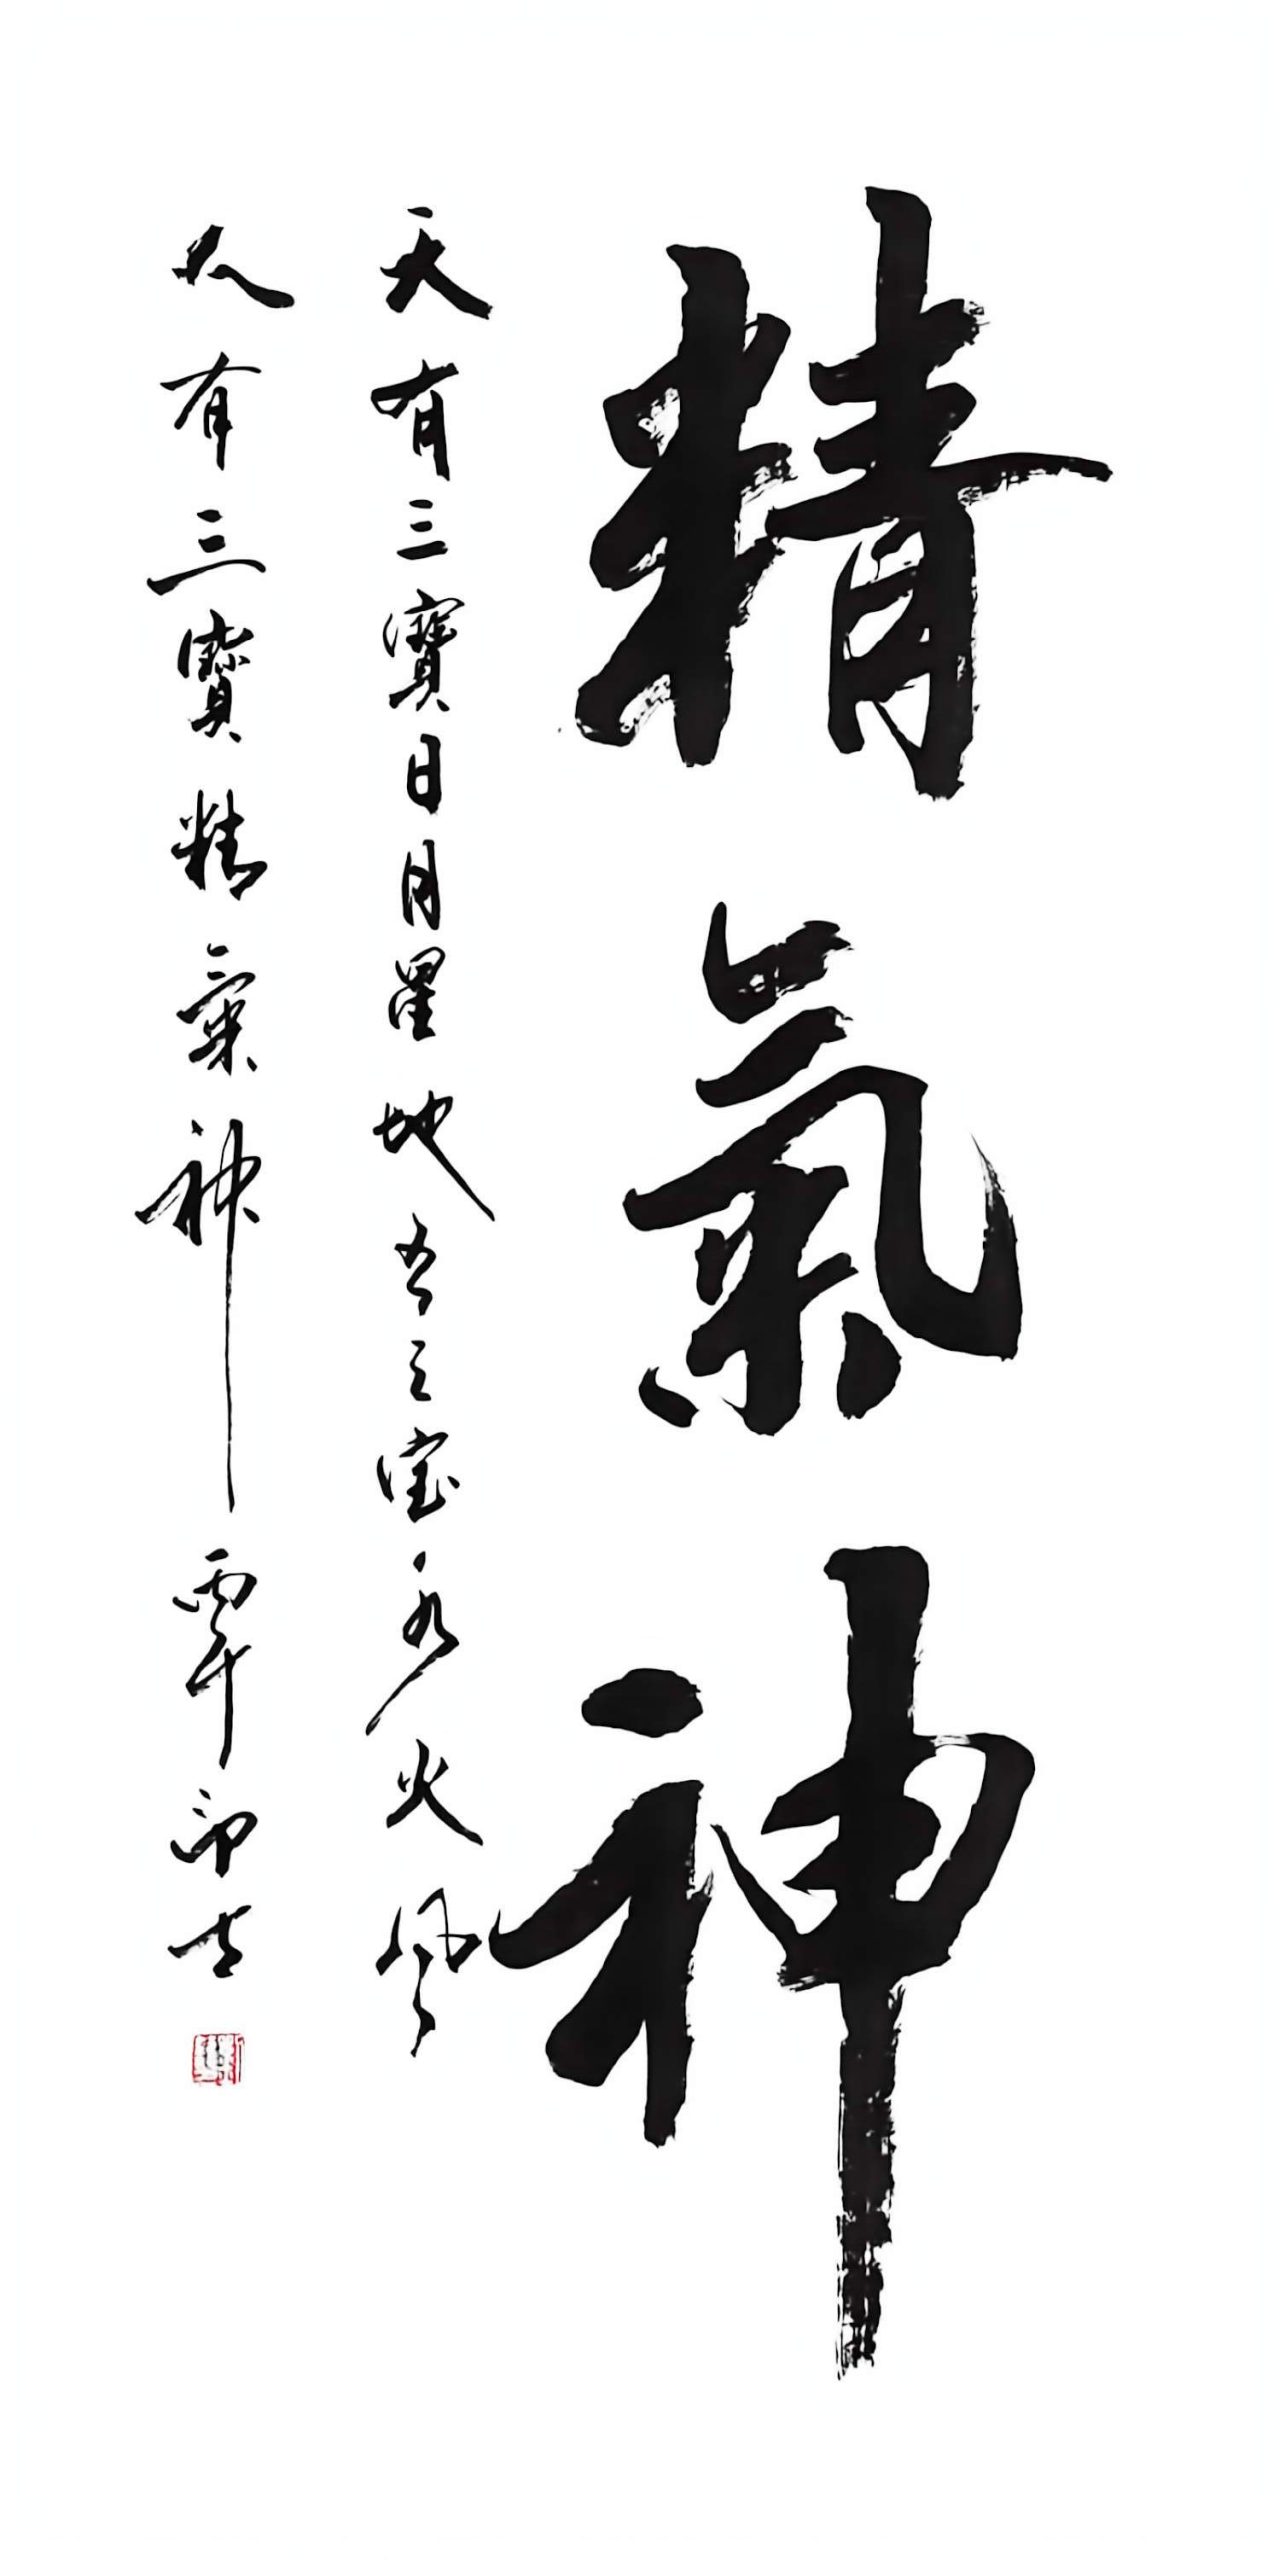 精氣神
天有三寶日月星地有三宝水火风
人有三寶精氣神丙午